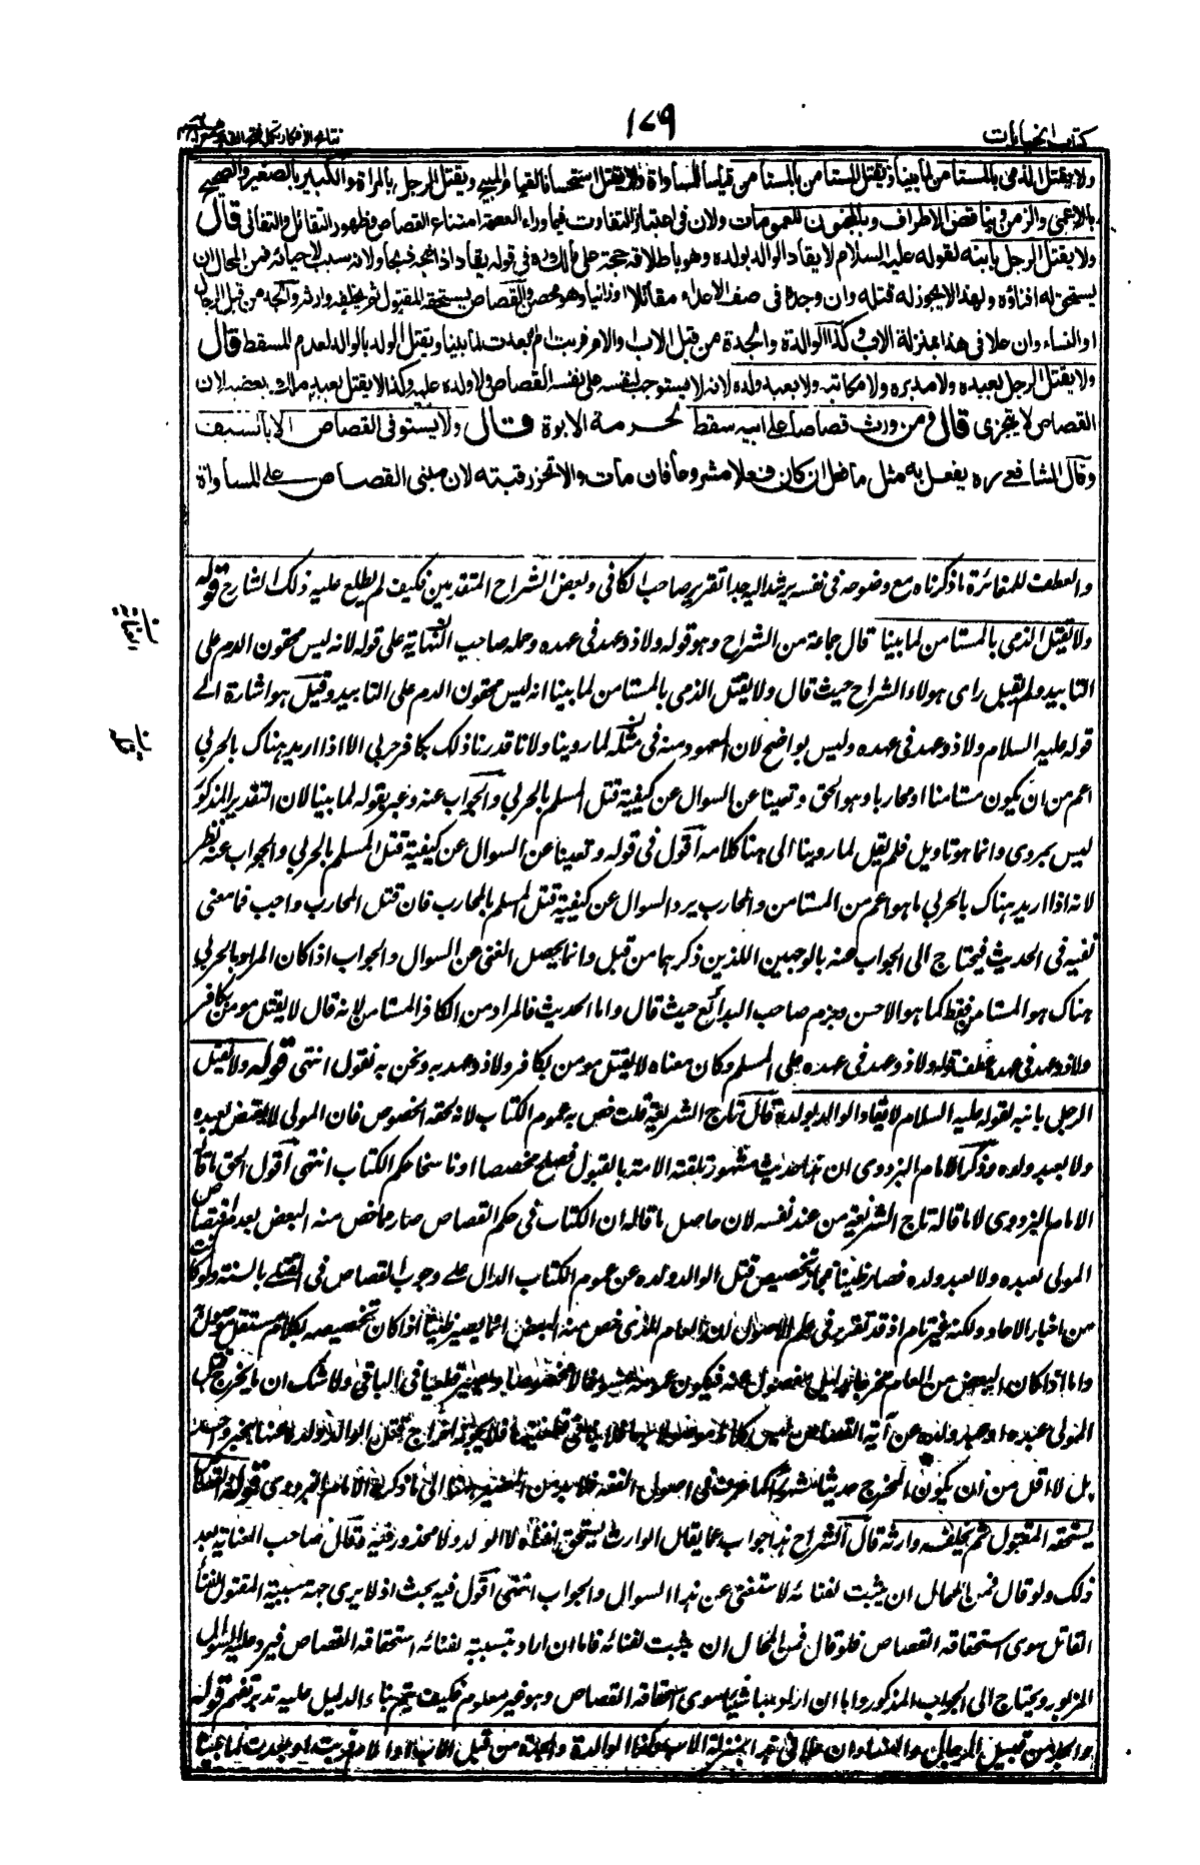 كتاب الجنايات
١٧٩
نتائج الافكار تكملة فتح القدير
ولا يقتل الذمي بالمستامن لما بينا ويقتل المستامن بالمستامن قياسا للمساواة ولا يقتل استحسانا لقيام المبيح ويقتل الرجل بالمرأة والكبير بالصغير والصحيح
بالاعمى والزمن وبناقص الاطراف وبالمجنون للعمومات ولان في اعتبار التفاوت فيما وراء العصمة امتناع القصاص وظهور التقاتل والتفاني قال
ولا يقتل الرجل بابنه لقوله عليه السلام لا يقاد الوالد بولده وهو باطلاقه حجة على مالك ره في قوله يقاد اذا ذبحه ذبحا ولانه سبب لاحيائه فمن المحال ان
يستحق له افناؤه ولهذا لا يجوز له قتله وان وجده في صف الاعداء مقاتلا او زانيا وهو محصن والقصاص يستحقه المقتول ثم يخلفه وارثه والجد من قبل الرجال
او النساء وان علا في هذا بمنزلة الاب وكذا الوالدة والجدة من قبل الاب والام قربت ام بعدت لما بينا ويقتل الولد بالوالد لعدم المسقط قال
ولا يقتل الرجل بعبده ولا مدبره ولا مكاتبه ولا بعبد ولده لانه لا يستوجب لنفسه على نفسه القصاص ولا ولده عليه وكذا لا يقتل بعبد ملك بعضه لان
القصاص لا يتجزى قال ومن ورث قصاصا على ابيه سقط لحرمة الابوة قال ولا يستوفى القصاص الا بالسيف
وقال الشافعي ره يفعل به مثل ما فعل ان كان فعلا مشروعا فان مات والا تحز رقبته لان مبنى القصاص على المساواة
والعطف للمغائرة ما ذكرناه مع وضوحه في نفسه يرشد اليه جدا تقرير صاحب الكافي وبعض الشراح المتقدمين فكيف لم يطلع عليه ذلك الشارح قوله
ولا يقتل الذمي بالمستامن لما بينا قال جماعة من الشراح وهو قوله ولا ذو عهد في عهده وحمله صاحب النهاية على قوله لانه ليس محقون الدم على
التابيد ولم يقبل راى هولاء الشراح حيث قال ولا يقتل الذمي بالمستامن لما بينا انه ليس محقون الدم على التابيد وقيل هو اشارة الى
قوله عليه السلام ولا ذو عهد في عهده وليس بواضح لان المعهود منه في مثله لما روينا ولانا قدرنا ذلك بكافر حربي الا اذا اريد هناك بالحربي
اعم من ان يكون مستامنا او محاربا وهو الحق وتعينا عن السوال عن كيفية قتل المسلم بالحربي والجواب عنه وعبر بقوله لما بينا لان التقدير المذكور
ليس بمروى وانما هو تاويل فلم يقل لما روينا الى هنا كلامه اقول في قوله وتعينا عن السوال عن كيفية قتل المسلم بالحربي والجواب عنه نظر
لانه اذا اريد هناك بالحربي ما هو اعم من المستامن والمحارب يرد السوال عن كيفية قتل المسلم بالمحارب فان قتل المحارب واجب فما معنى
نفيه في الحديث فيحتاج الى الجواب عنه بالوجهين اللذين ذكرهما من قبل وانما يحصل الغنى عن السوال والجواب اذا كان المراد بالحربي
هناك هو المستامن فقط كما هو الاحسن وجزم صاحب البدائع حيث قال واما الحديث فالمراد من الكافر المستامن لانه قال لا يقتل مومن بكافر
ولا ذو عهد في عهده عطف قوله ولا ذو عهد في عهده على المسلم وكان معناه لا يقتل مومن بكافر ولا ذو عهد به ونحن به نقول انتهى قوله ولا يقتل
الرجل بابنه لقوله عليه السلام لا يقاد الوالد بولده قال تاج الشريعة قلت خص به عموم الكتاب لانه لحقه الخصوص فان المولى لا يقتص بعبده
ولا بعبد ولده وذكر الامام البزدوى ان هذا حديث مشهور تلقته الامة بالقبول فصلح مخصصا او ناسخا حكم الكتاب انتهى اقول الحق ما قال
الامام البزدوى لا ما قاله تاج الشريعة من عند نفسه لان حاصل ما قاله ان الكتاب في حكم القصاص صار مما خص منه البعض بعدم اقتصاص
المولى لعبده ولا لعبد ولده فصار ظنيا فجاز تخصيص قتل الوالد ولده عن عموم الكتاب الدال على وجوب القصاص في القتلى بالسنة ولو كانت
من اخبار الاحاد ولكنه غير تام اذ قد تقرر في علم الاصول ان العام الذى خص منه البعض انما يصير ظنيا اذا كان تخصيصه بكلام مستقل موصول
واما اذا كان البعض من العام
المولى عبده او عبد ولده عن آية القصاص ليس
بل لا اقل من ان يكون المخرج حديثا مشهورا كما عرف في اصول الفقه فلابد من المصير الى ما ذكره الامام البزدوى قوله والقصاص
يستحقه المقتول ثم يخلفه وارثه قال الشراح هذا جواب عما يقال الوارث يستحق افناءه لا الولد ولا محذور فيه وقال صاحب العناية بعد
ذلك ولو قال فمن المحال ان يثبت لفنائه لاستغنى عن هذا السوال والجواب انتهى اقول فيه بحث اذ لا يرى جهة سببية المقتول لفناء
القاتل سوى استحقاقه القصاص فلو قال فمن المحال ان يثبت لفنائه فاما ان اراد بتسببه لفنائه استحقاقه القصاص فيرد عليه السوال
المزبور ويحتاج الى الجواب المذكور واما ان اراد بها شيئا سوى استحقاقه القصاص وهو غير معلوم فكيف يتم بناء الدليل عليه تدبر تفهم قوله
والجد من قبيل الرجال والنساء وان علا في هذا بمنزلة الاب وكذا الوالدة والجدة من قبل الاب او الام قربت او بعدت لما بينا